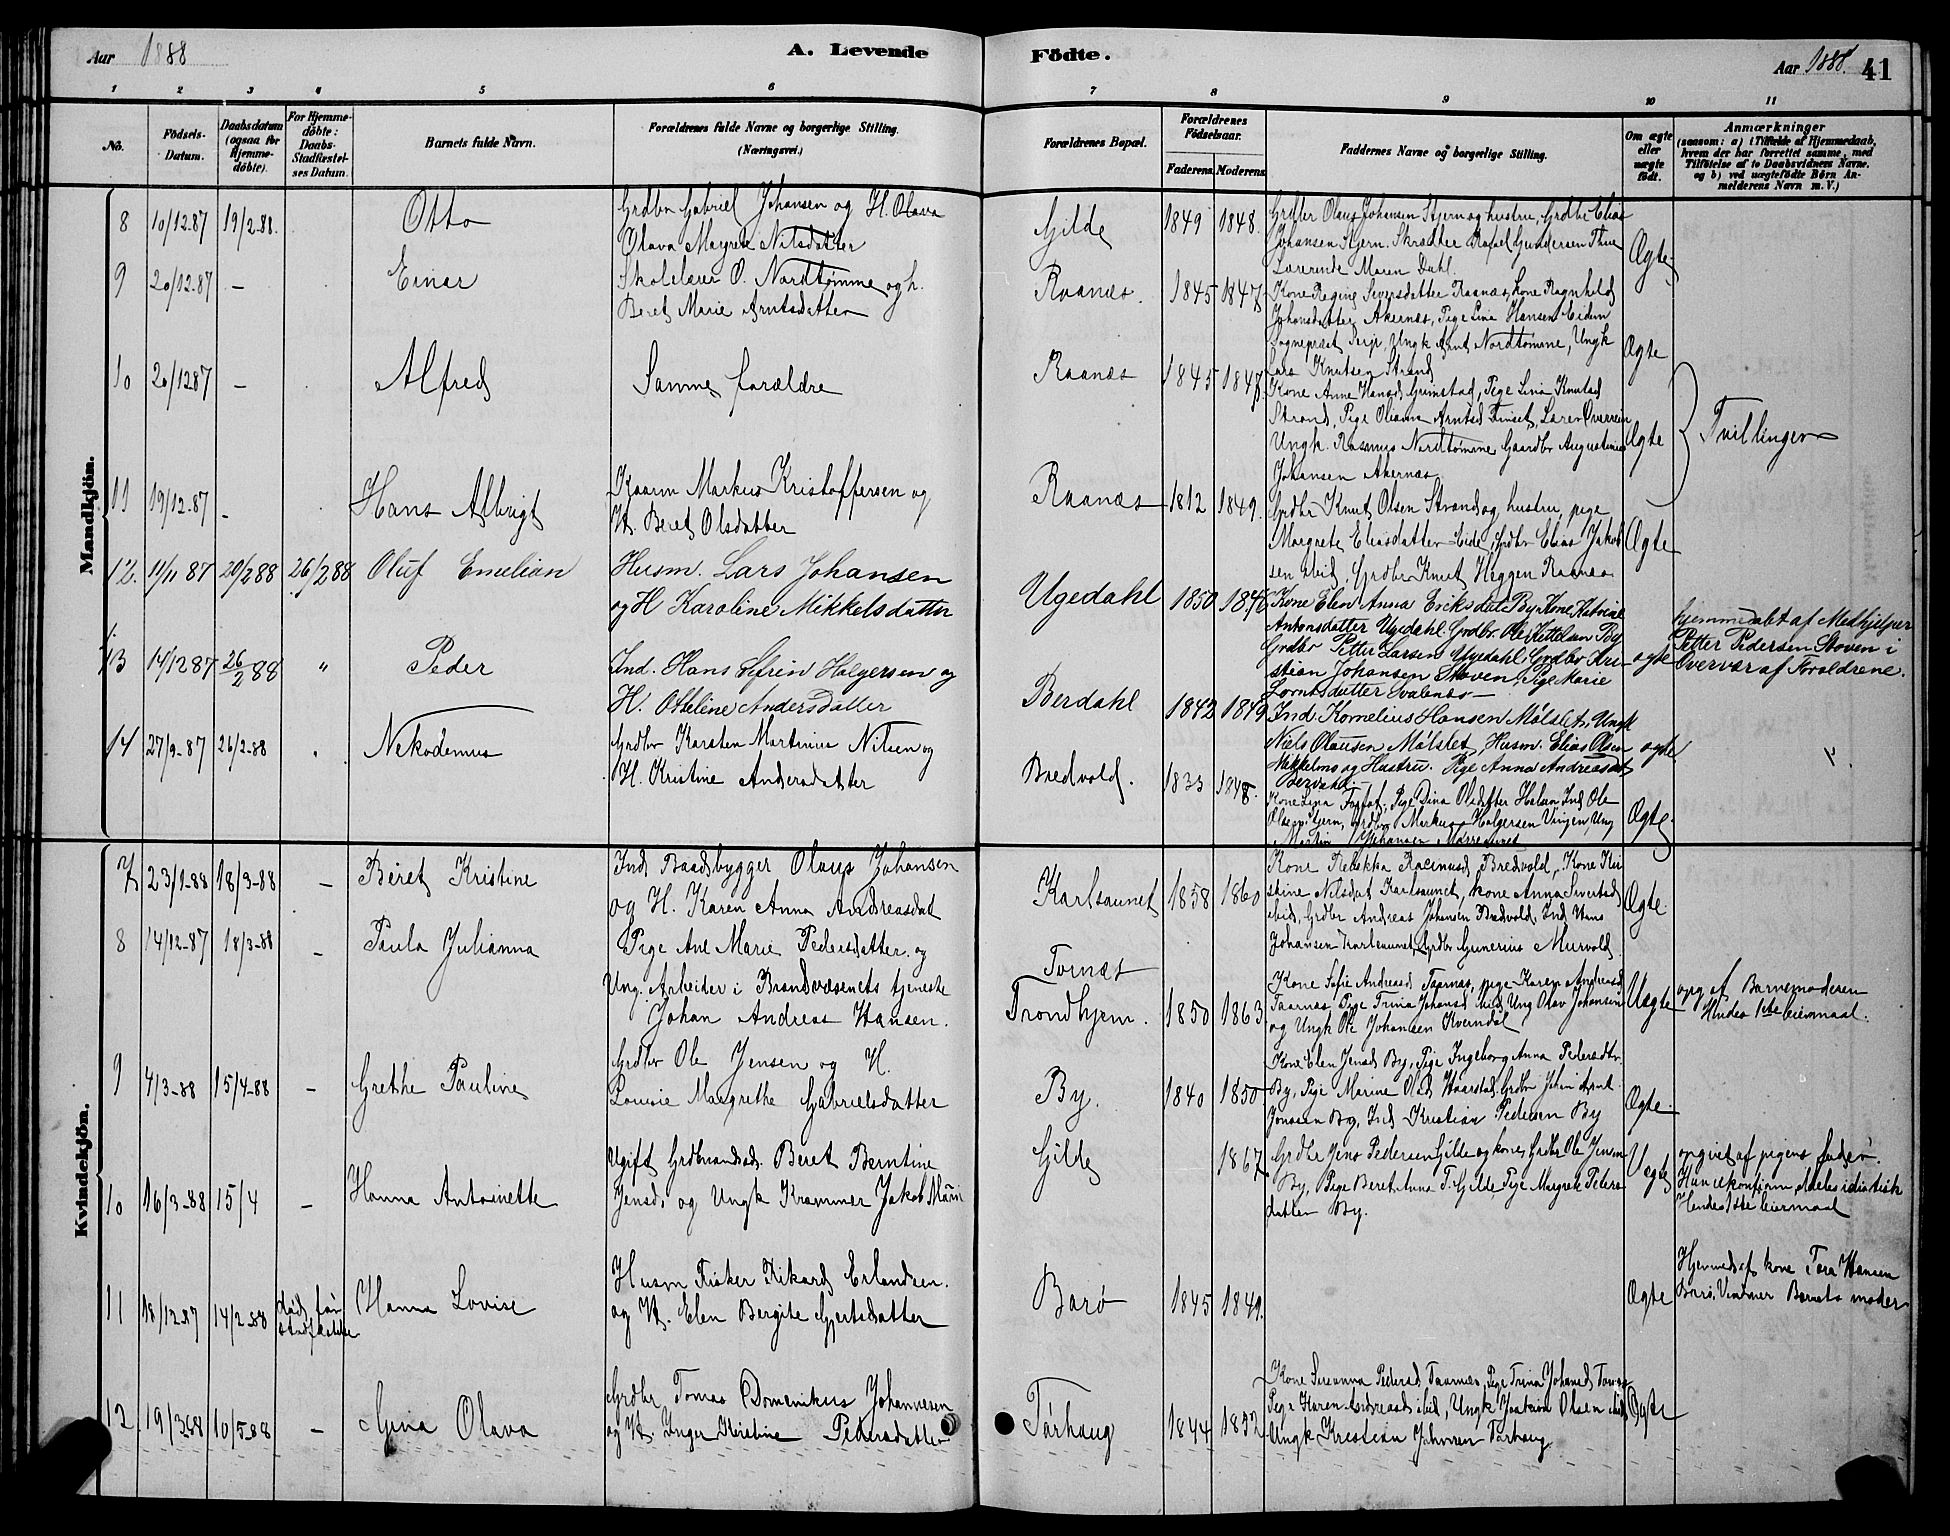 Aar 1888
A. Levende
Födte.
Aar 1888. 41
1 2 3 4 5 6 7 8 9 10 11
No.
Födsels-Datum.
Daabsdatum (ogsaa for Hjemmedöbte).
For Hjemmedöbte: Daabs-Stadfæstelses Datum.
Barnets fulde Navn.
Forældrenes fulde Navne og borgerlige Stilling. (Næringsvei.)
Forældrenes Bopæl.
Forældrenes Födselsaar.
Faderens. Moderens.
Faddernes Navne og borgerlige Stilling.
Om ægte eller uægte födt.
Anmærkninger
(saasom: a) i Tilfælde af Hjemmedaab, hvem der har forrettet samme, med Tilföielse af to Daabsvidners Navne, og b) ved uægtefödte Börn Anmelderens Navn m. V.)
Mandkjön.
8 10/12-87 19/2-88. Otto
Grdbr Gabriel Johansen og H. Olava
Olava Margrete Nilsdatter
Gilde 1849 1848.
Grdbr Olaus Johansen Stjern og hustru, Grdbr Elias
Johansen Stjern. Skrædder Rafael Gundersen
Lærerinde Maren Dahl.
Ægte
9 20/12-87 — Einar
Skolelærer O. Nordtømme og h.
Beret Marie Arntsdatter
Raanæs. 1845 1847
Kone Regine Sivertsdatter Raanæs, Kone Ragnhild
Johansdatter Akernæs, Pige Lina Hansen Eidem
Sogneprest, Ungk Arnt Nordtømme, Ungk
Lars Knutsen Strand
Ægte
10 20/12 87 — Alfred
Samme forældre
Raanæs 1845 1847
Kone Anne Hansd. Grimstad, Pige Lina Knutsd
Strand, Pige Olianna Arntsd, Lærer Overrein
Ungk. Rasmus Nordtømme Gaardbr Augustinus
Johansen Akernæs
Ægte
Tvillinger
11 19/12-87 - Hans Albrigt
Kaarm Markus Kristoffersen og
H. Beret Olsdatter
Raanæs 1812 1849.
Grdbr Knut Olsen Strand og hustru, pige
Margrete Eliasdatter Eide, Grdbr Elias Jakob
sen ibid, Grdbr Knut Heggen Raanæs
Ægte
12. 11/11 87 20/2 88 26/2 88 Oluf Emelian
Husm. Lars Johansen
og H Karoline Mikkelsdatter
Ugedahl 1850 1846
Kone Elen Anna Eriksdat By, Kone Katrine
Antonsdatter Ugedahl. Grdbr. Ole Kettelsen By
Grdbr Petter Larsen Ugedahl, Grdbr Kri-
stian Johansen Stoven, Pige Marie
Lorntsdatter Svalenæs —
ægte
hjemmedøbt af Medhjelper
Petter Pedersen Stoven i
Overvær af Forældrene.
13 14/12 87 26/2 88 " Peder
Ind. Hans Sefrin Holgersen og
H. Otteline Andersdatter
Berdahl 1842 1849
Ind. Kornelius Hansen Mølslet, Ungk
Niels Olausen Mølslet, Husm. Elias Olsen
Mikkelmo og Hustru. Pige Anna Andreasdt
Berdahl —
ægte
14 27/9-87 26/2-88 Nekodemus
Grdbr Karsten Martinius Nilsen og
H. Kristine Andersdatter
Bredvold. 1833 1848.
Kone Lina, Pige Dina Olsdatter, Ind Ole
Olsen Stjern, Grdbr Markus Holgersen Vingen, Ung
Martin Johansen
Ægte
Kvindekjön.
7 23/1-88 18/3-88 — Beret Kristine
Ind Baadsbygger Olaus Johansen
og H. Karen Anna Andreasdat
Karlsaunet 1858 1860
Kone Rebekka Rasmusd, Bredvold, Kone Kri
stine Nilsdat Karlsaunet, Kone Anna Sivertsd
ibid, Grdbr Andreas Johansen Bredvold, Ind Hans
Johansen Karlsaunet, Grdbr Gunerius Murvold
Ægte
8 14/12-87 18/3-88 - Paula Julianna
Pige Ane Marie Pedersdatter og
Ung. Arbeider i Brandvæsenets tjeneste
Johan Andreas Hansen.
Tornæs
Trondhjem. 1850 1863
Kone Sofie Andreasd Taarnæs, pige Karen Andreasd
Taarnæs Pige Trina Johansd ibid Ung Olav Johansen
og Ungk Ole Johansen Kverndal
Uægte
opg af Barnemoderen
Hindes 1ste leiermaal.
9 4/3-88 15/4-88 — Grethe Pauline
Grdbr Ole Jensen og H.
Lovise Margrethe Gabrielsdatter
By. 1840 1850
Kone Elen Jensd By, Pige Ingeborg Anna Pedersdtr.
By, Pige Marine Olsd Haarstad, Grdbr Johan Arnt
Jonasen By, Ind Kristian Pedersen By
Ægte
10 16/3-88 15/4 — Hanna Antoinette
Ugift Grdmandsd. Beret Berntine
Jensd. og Ungk Krammer Jakob
Gilde 1867
Grdbr Jens Pedersen Gilde og kone, Grdbr Ole Jensen
By, Pige Beret Anna T. Gilde, Pige Margrete Peders
datter By.
Uægte
opgivet af pigens fader.
Hun ikkonfirm., idiotisk
Hendes 1ste leiermaal
11 18/12-87 14/2-88 død før stadfæstelse Hanna Lovise
Husm Fisker Rikard Erlandsen.
og H. Elen Bergite Gjertsdatter
Barø 1845 1849.
Ægte
Hjemmed af kone Tora Hansen
Barø, Vidner Barnets moder
12 19/3 88 10/5-88 — Gina Olava
Grdbr Tomas Domenikus Johannesen
og H. Inger Kirstine Pedersdatter
Tårhaug 1844 1852
Kone Susanna Pedersd Taarnæs, Pige Trina Johansd
Pige Karen Andreasd ibid, Ungk Joakim Olsen ibid
Ungk Kristian Tårhaug
Ægte